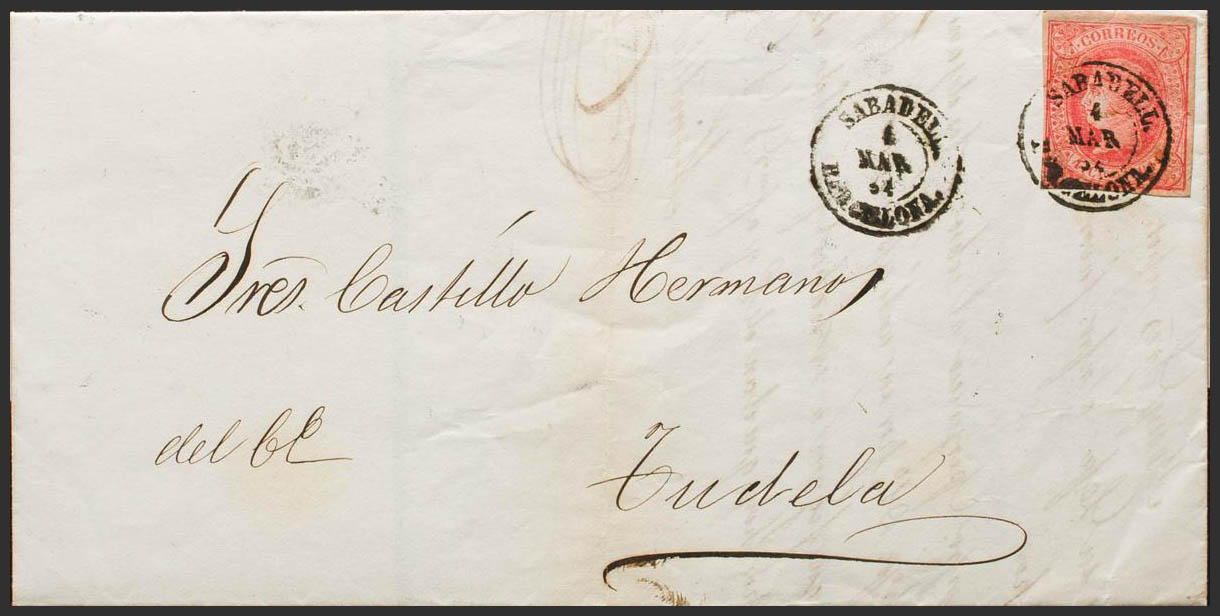 CORREOS
SABADELL.
4
MAR
SABADELL.
4
MAR
64
BARCELONA.
Sres. Castillo Hermanos
del Cº
Tudela